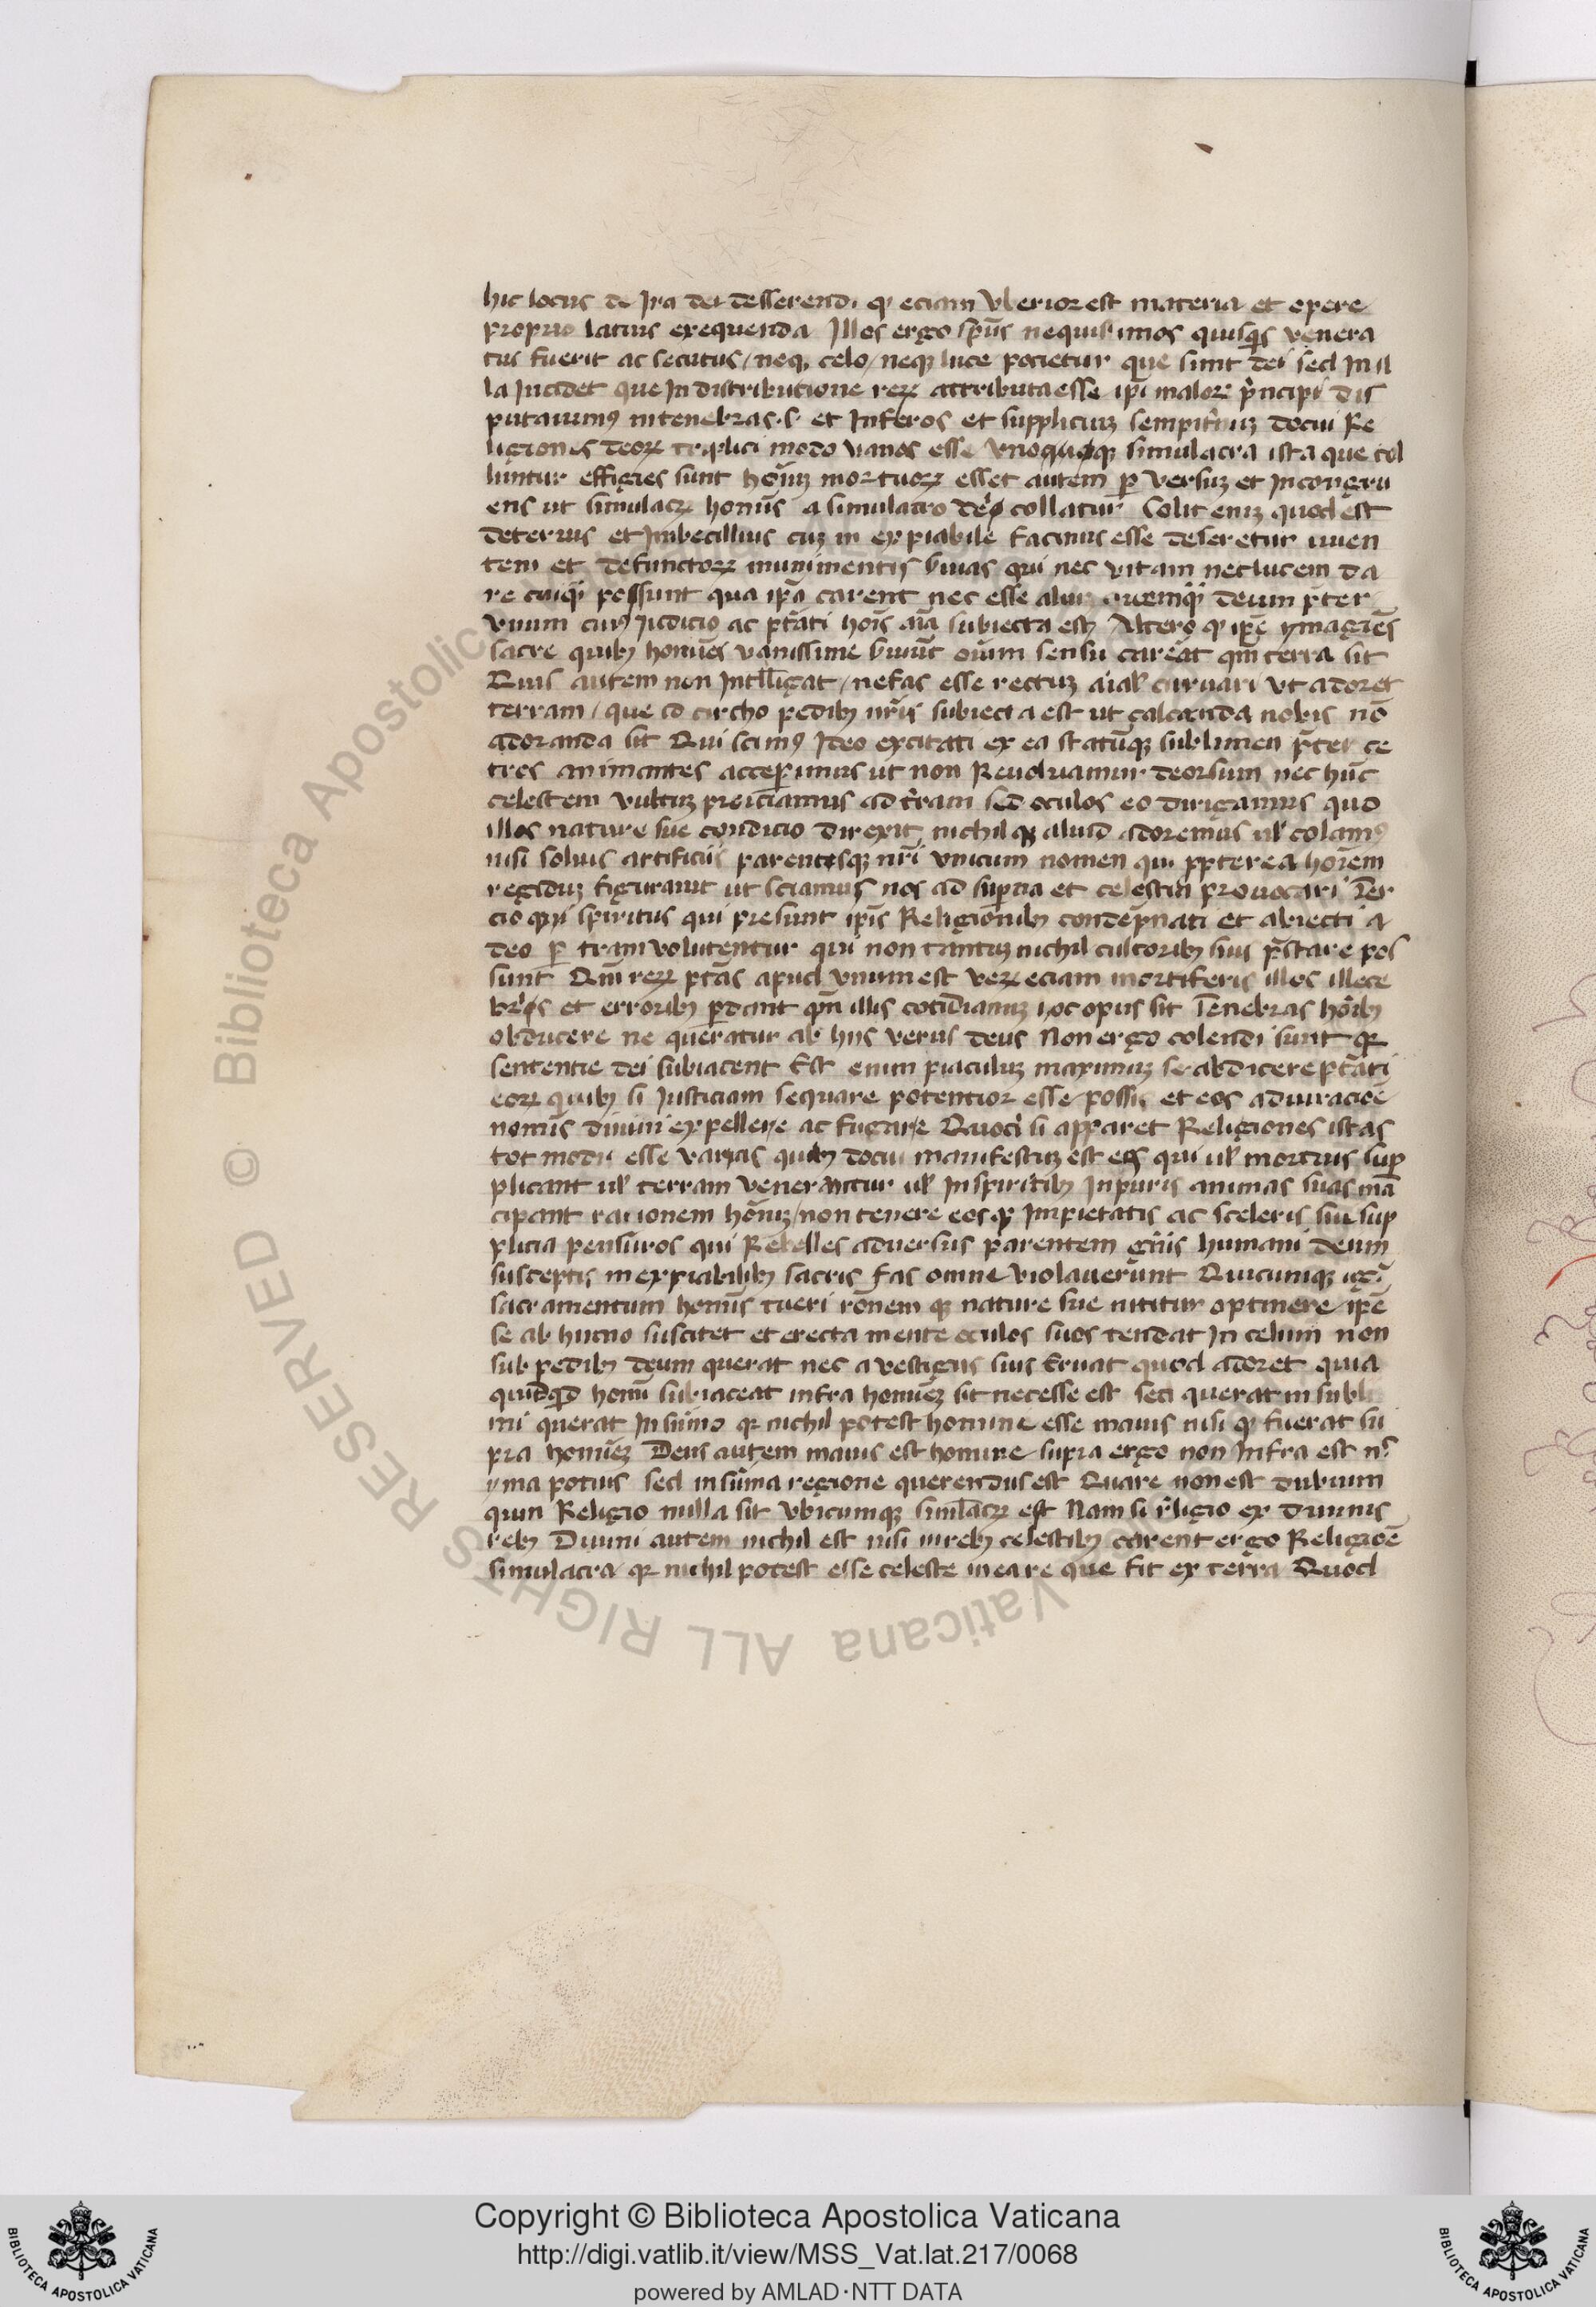 hic locus de Ira dei desserendi qꝫ eciam Vberior est materia et opere
proprio latius exequenda Illos ergo spūs nequissimos quisq̄s venera
tus fuerit ac secutus / neqꝫ celo / neqꝫ luce pocietur que sunt dei sed In il
la Incidet que In distributione reꝝ attributa esse ip̄i malorꝫ p̄ncipi dis
putauimꝰ in tenebras .s. et Inferos et suppliciuꝫ sempit̄nuꝫ docui Re
ligiones deoꝝ triplici modo vanas esse vno qꝫ simulacra ista que col
luntur effigies sunt hōīuꝫ mortuoꝝ esset autem ꝑ versuꝫ et Incongru
ens ut simulacꝝ homīs a simulacro dei collatur Colit enīꝫ quod est
deterius et Imbecillius cuꝫ in expiabile facinus esse deseretur viuen
tem et defunctoꝝ munimentis qui nec vitam nec lucem da
re cuiqꝫ possunt qua ip̄a carent nec esse aliuꝫ quemqꝫ deum p̄ter
vnum cuiꝰ iudicio ac ptāti hoīs aīa subiecta est Altero qꝫ ip̄e ymagies
sacre quibꝫ homies vanissime oīum sensu careat qm̄ terra sit
Quis autem non Intlligat / nefas esse rectuꝫ aīal curuari vt adoret
terram / que id circho pedibꝫ nr̄is subiecta est ut calcanda nobis nō
adoranda sit Qui scimꝰ Ideo excitati ex ea statūqꝫ sublimen p̄ter ce
tros animantes accepimus ut non Reuoluamur deorsum nec hūc
celestem vultuꝫ proiciamus ad t̄ram sed oculos eo dirigamus quo
illos nature sue condicio direxit nichil qꝫ aliud adoremus ul colamꝰ
nisi solius artificis parentisqꝫ nr̄i vnicum nomen qui ꝓpterea hoīem
regiduꝫ figurauit ut sciamus nos ad sup̄na et celestia prouocari Ter
cio qꝫ spiritus qui presunt ip̄is Religionibꝫ condēpnati et abiecti a
deo ꝑ t̄ram volutentur qui non tantuꝫ nichil cultoribꝫ suis p̄stare pos
sunt Qm̄ reꝝ ptās apud vnum est veꝝ eciam mortiferis illos illece
bris et erroribꝫ ꝑdant qm̄ illis cotidianuꝫ hoc opus sit Tenebras hoībꝫ
obducere ne queratur ab hiis verus deus Non ergo colendi sunt qꝛ
sententie dei subiacent Est enim piaculuꝫ maximuꝫ se abdicere ptāti
eoꝝ quibꝫ si Iusticiam sequare potentior esse possis et eos adiuracōe
nomīs diuini expellere ac fugare Quod si apparet Religiones istas
tot modis esse vanas quibꝫ docui manifestuꝫ est eos qui ul mortuis supꝑ
plicant ul terram venerantur ul In spiritibꝫ Inpuris animas suas mā
cipant racionem hoīuꝫ / non tenere eos qꝫ Impietatis ac sceleris sui sup
plicia pensuros qui Rebelles adversus parentem gn̄is humani deum
susceptis in expiabilibꝫ sacris fas omne violauerunt Quicumqꝫ igr̄
sacramentum homīs tueri rōnem qꝫ nature sue nititur optinere ip̄e
se ab humo suscitet et erecta mente oculos suos tendat In celum non
sub pedibꝫ deum querat nec a vestigiis suis eruat quod adoret quia
quidqꝫ homī subiaceat infra homīeꝫ sit necesse est sed querat in subli
mi querat In sūmo qꝛ nichil potest homine esse maius nisi qꝫ fuerat su
pra homīeꝫ Deus autem maius est homine supra ergo non Infra est
yma potius sed in sūma regione querendus est Quare non est dubium
quin Religio nulla sit vbicumqꝫ simlacꝝ est Nam si r̄ligio ex diuinis
rebꝫ Diuini autem nichil est nisi in rebꝫ celestibꝫ carent ergo Religiōe
simulacra qꝛ nichil potest esse celeste in ea re que fit ex terra Quod
© Biblioteca Apostolica Vaticana ALL RIGHTS RESERVED
Copyright © Biblioteca Apostolica Vaticana
http://digi.vatlib.it/view/MSS_Vat.lat.217/0068
powered by AMLAD·NTT DATA
BIBLIOTECA APOSTOLICA VATICANA
BIBLIOTECA APOSTOLICA VATICANA